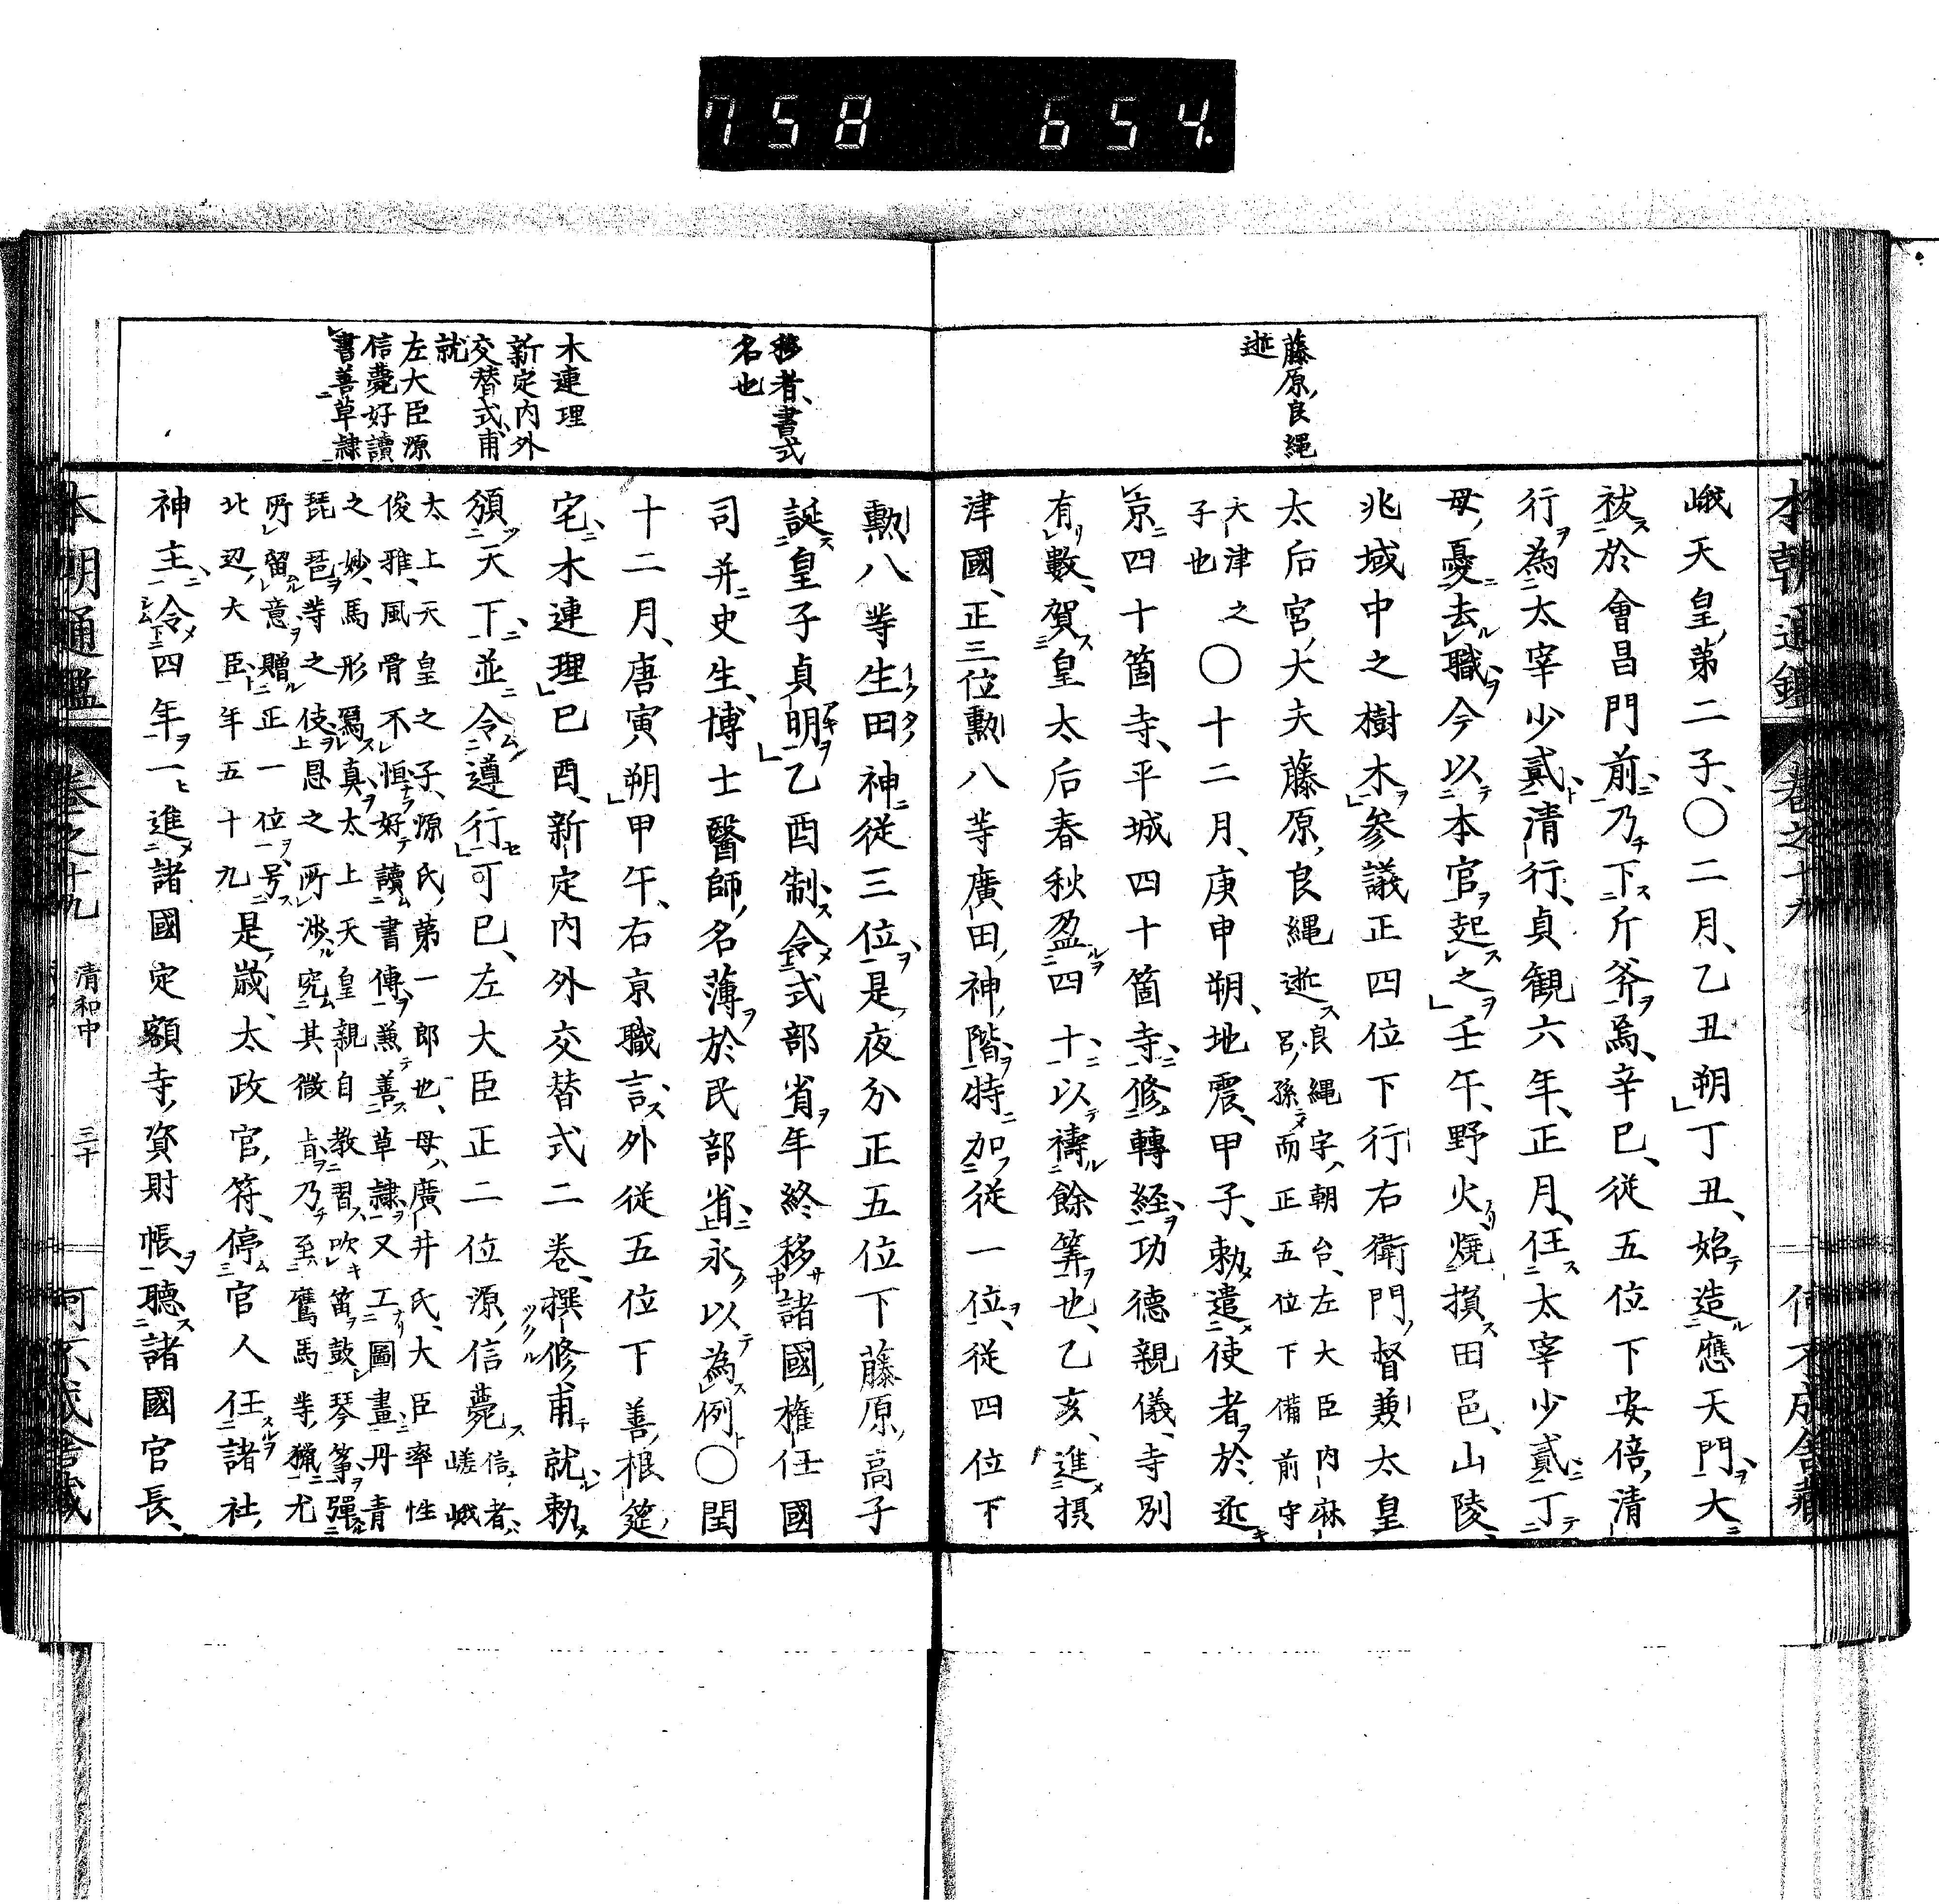 758 654.
藤原良繩
逝
峨天皇第二子〇二月乙丑朔丁丑始造應天門大
祓於會昌門前乃下斤斧焉辛巳從五位下安倍清
行為太宰少貳清行貞観六年正月任太宰少貳丁
母憂去職今以本官起之壬午野火燒損田邑山陵
兆域中之樹木參議正四位下行右衛門督兼太皇
太后宮大夫藤原良繩逝良繩字朝台左大臣内麻
呂孫而正五位下備前守
大津之
子也〇十二月庚申朔地震甲子勅遣使者於近
京四十箇寺平城四十箇寺修轉経功德親儀寺別
有數賀皇太后春秋盈四十以禱餘筭也乙亥進摂
津國正三位勲八等廣田神階特加從一位從四位下
勲八等生田神從三位是夜分正五位下藤原高子
誕皇子貞明乙酉制令式部省年終移諸國權任國
司并史生博士醫師名薄於民部省永以為例〇閏
十二月唐寅朔甲午右京職言外從五位下善根筵
宅木連理己酉新定内外交替式二卷撰修甫就勅
頒天下並令遵行可巳左大臣正二位源信薨信者
嵯峨
太上天皇之子源氏第一郎也母廣井氏大臣率性
俊雅風骨不恒好讀書傳兼善草隷又工圖畫丹青
之妙馬形寫真太上天皇親自教習吹笛鼓琴箏彈
琵琶等之伎思之所渉究其微旨乃至鷹馬等獵尤
所留意贈正一位号
北辺大臣年五十九是歳太政官符停官人任諸社
神主令四年一進諸國定額寺資財帳聽諸國官長
移者書式
名也
木連理
新定内外
交替式甫
就
左大臣源
信薨好讀
書善草隷
本朝通鑑 卷之十九 清和中 三十